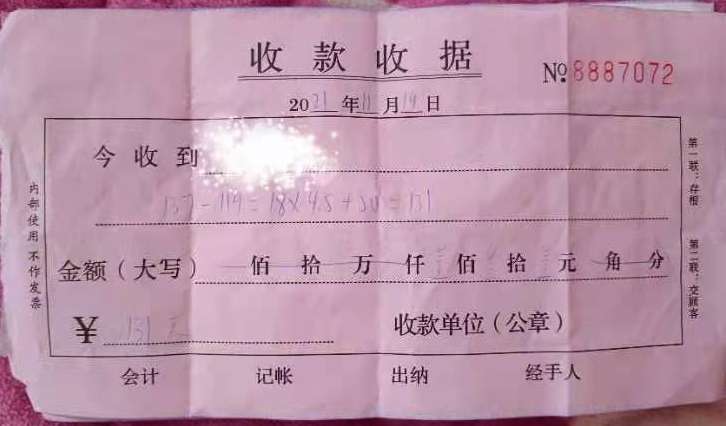 收款收据
№8887072
2021年11月19日
今收到
137-119=18×4.5+50=131
金额（大写） 佰 拾 万 仟 佰 拾 元 角 分
¥ 131元 收款单位（公章）
会计 记帐 出纳 经手人
内部使用 不作发票
第一联：存根 第二联：交顾客